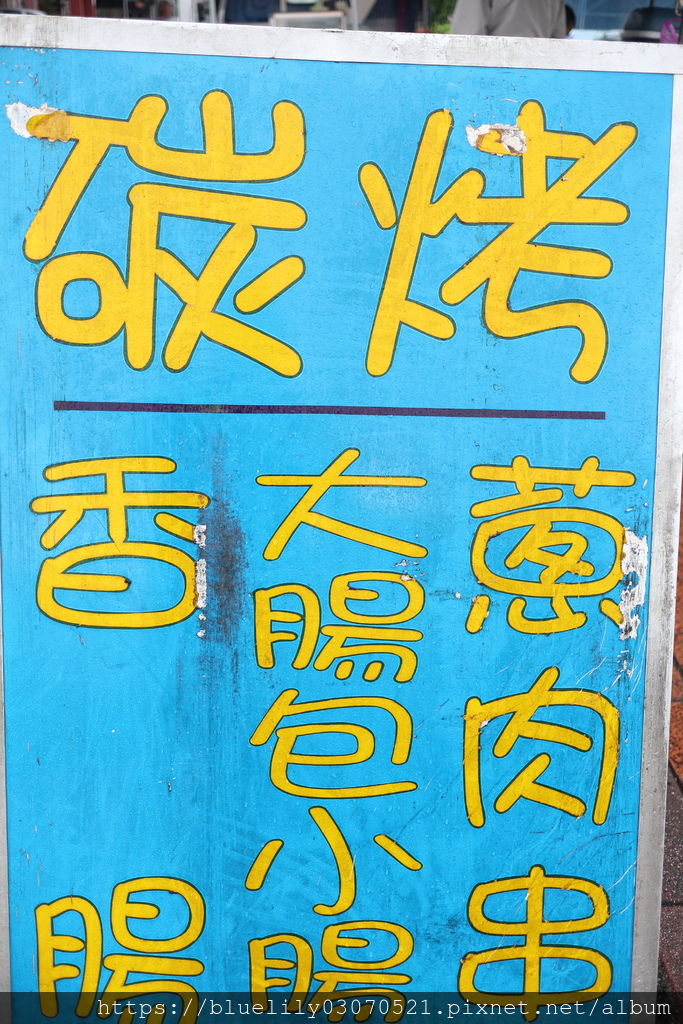 碳烤
蔥肉串
大腸包小腸
香腸
https://bluelily03070521.pixnet.net/album